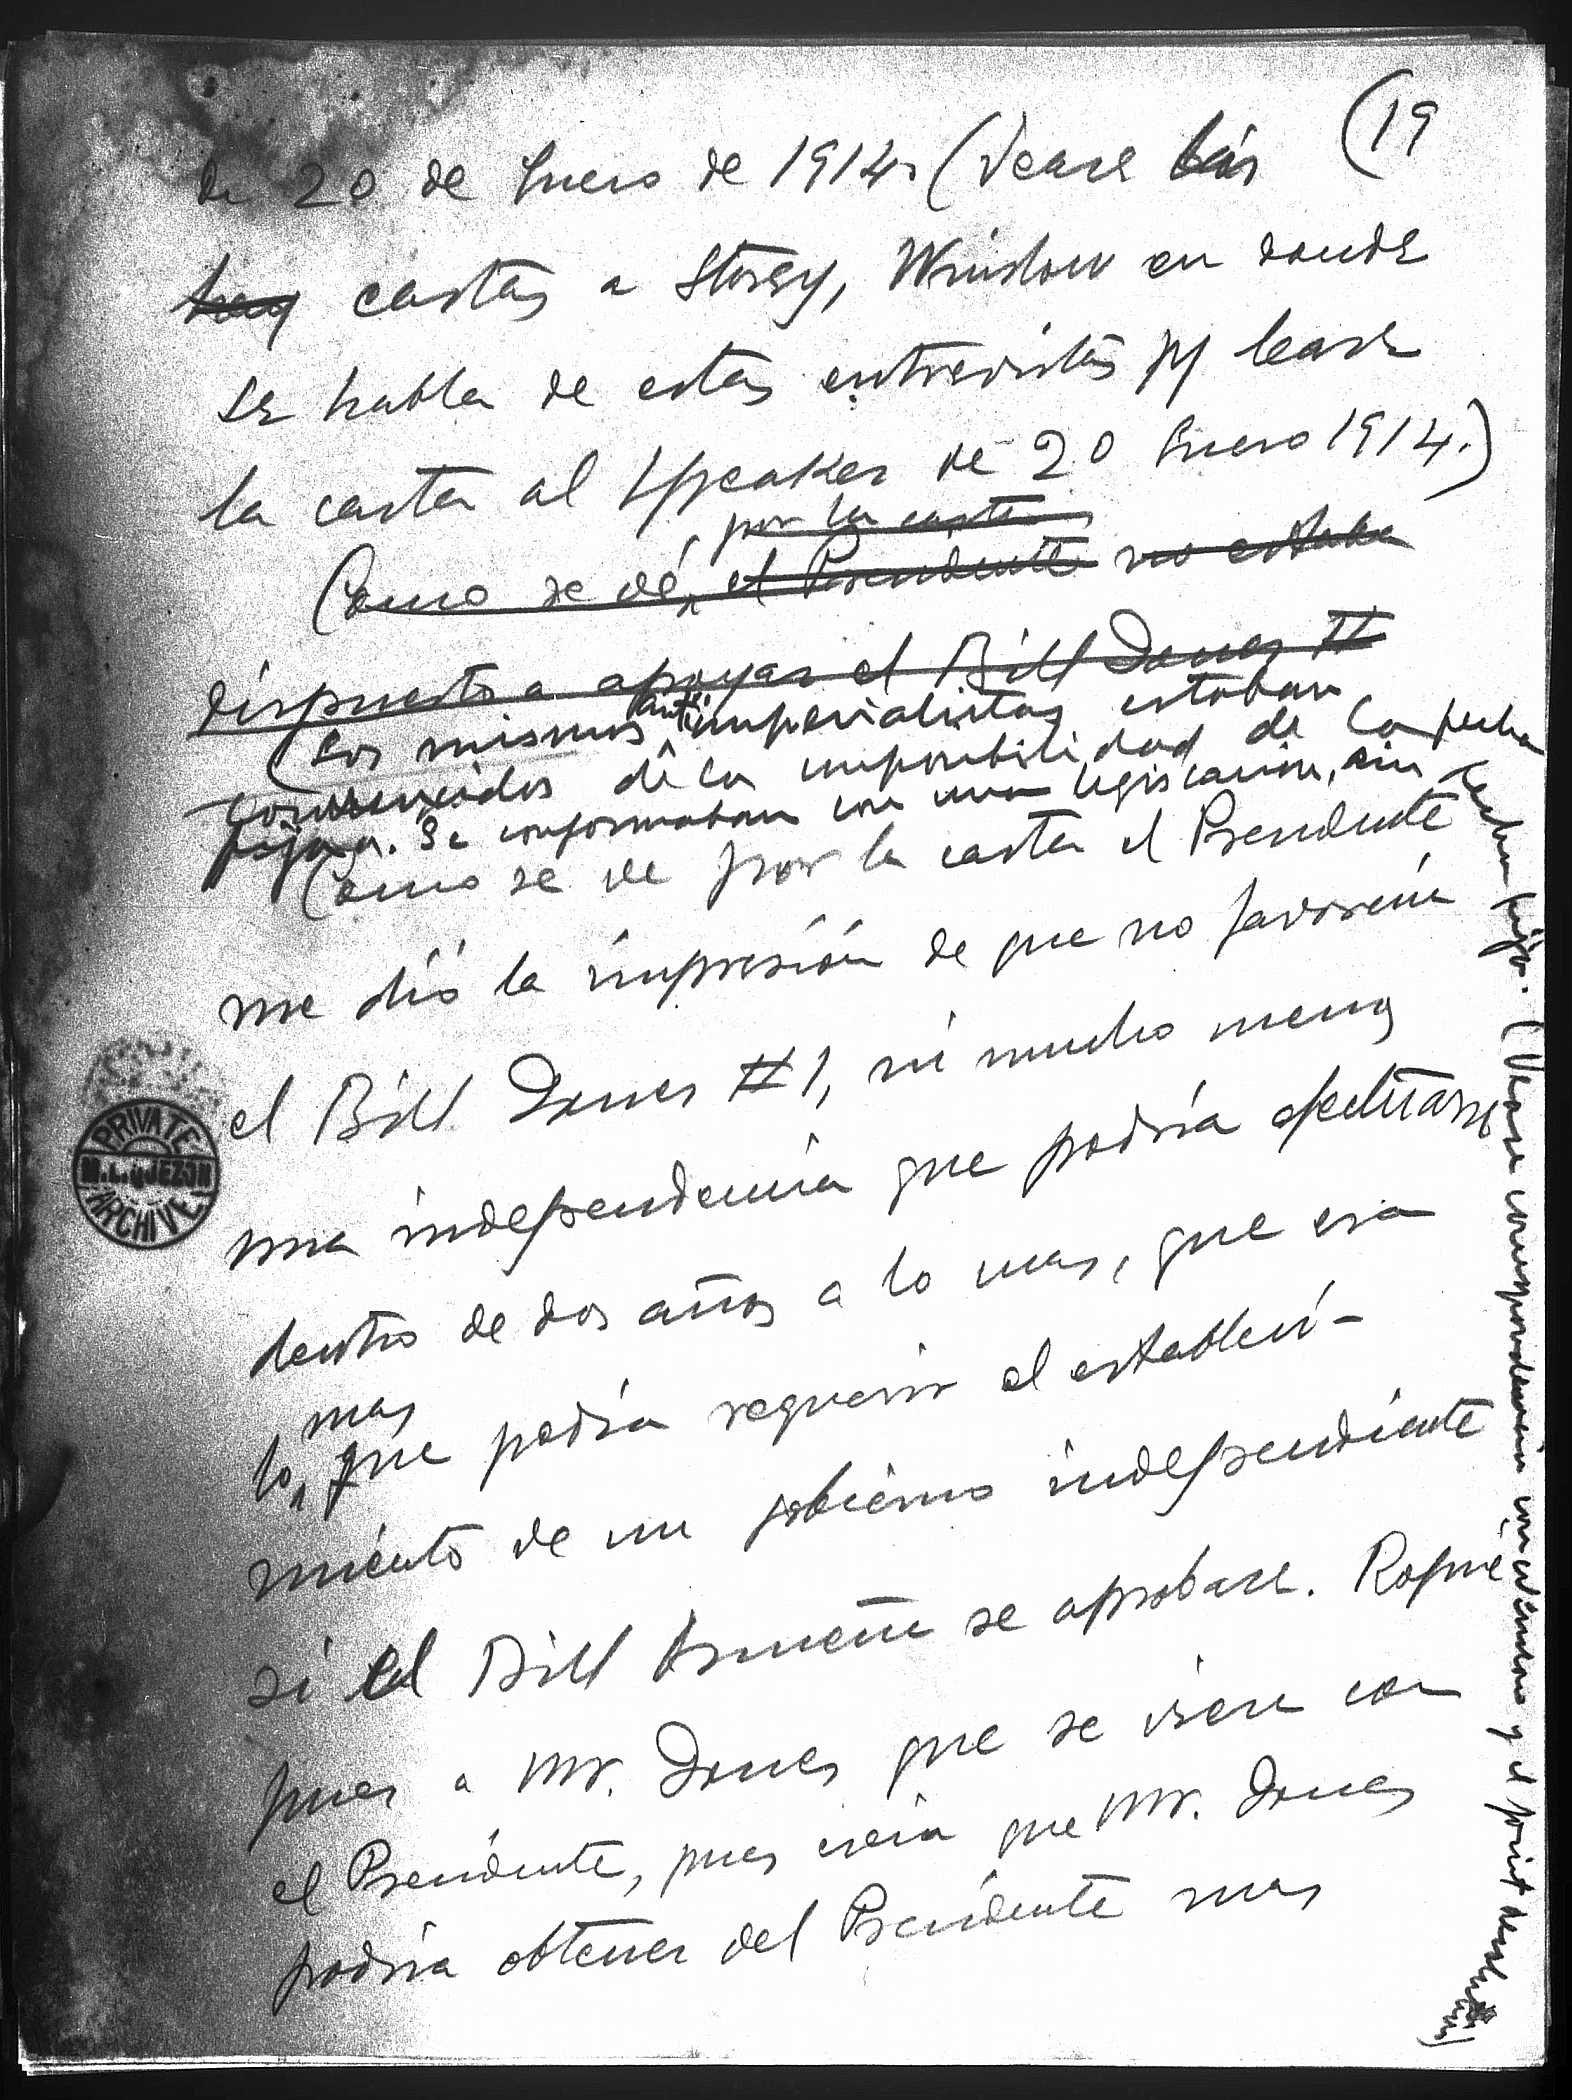 (19
de 20 de Enero de 1914. (Vease las
hay cartas a Storey, Winslow en donde
se habla de estas entrevistas y lease
la carta al Speaker de 20 Enero 1914.)
por la carta
Como se vé, el Presidente no estaba
dispuesto a apoyar el Bill Jones #
(Los mismos anti-imperialistas estaban
convencidos de la imposibilidad de la fecha
fijada. Se conformaban con una legislacion, sin
fecha fija. (Vease correspondencia con ellos y el joint
Como se ve por la carta el Presidente
me dió la impresión de que no favorecia
el Bill Jones #1, ni mucho menos
una independencia que podría efectuarse
dentro de dos años a lo mas, que era
mas
lo que podía requerir el estableci-
miento de un gobierno independiente
si el Bill Jones se aprobase. Rogué
pues a Mr. Jones que se viera con
el Presidente, pues creia que Mr. Jones
podria obtener del Presidente mas
PRIVATE
M.L. QUEZON
ARCHIVE